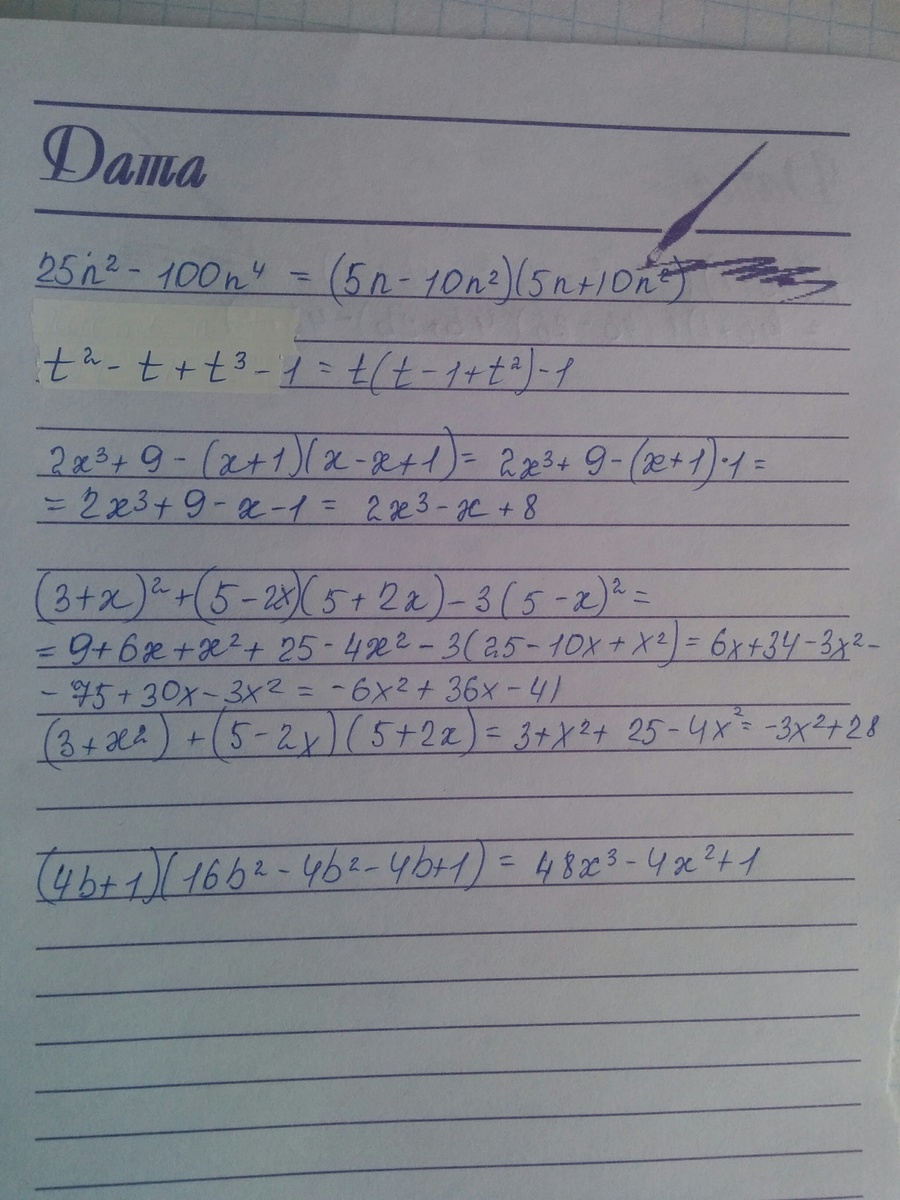 Дата
25n² - 100n⁴ = (5n - 10n²)(5n+10n²)
t² - t + t³ - 1 = t(t - 1 + t²) - 1
2x³ + 9 - (x+1)(x - x+1) = 2x³ + 9 - (x+1)·1 =
= 2x³ + 9 - x - 1 = 2x³ - x + 8
(3+x)² + (5 - 2x)(5 + 2x) - 3(5 - x)² =
= 9 + 6x + x² + 25 - 4x² - 3(25 - 10x + x²) = 6x + 34 - 3x² -
- 75 + 30x - 3x² = -6x² + 36x - 41
(3+x²) + (5 - 2x)(5+2x) = 3+x² + 25 - 4x² = -3x² + 28
(4b+1)(16b² - 4b² - 4b+1) = 48x³ - 4x² + 1